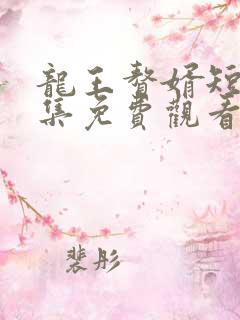 龍王贅婿短
集免費觀看
裴彤